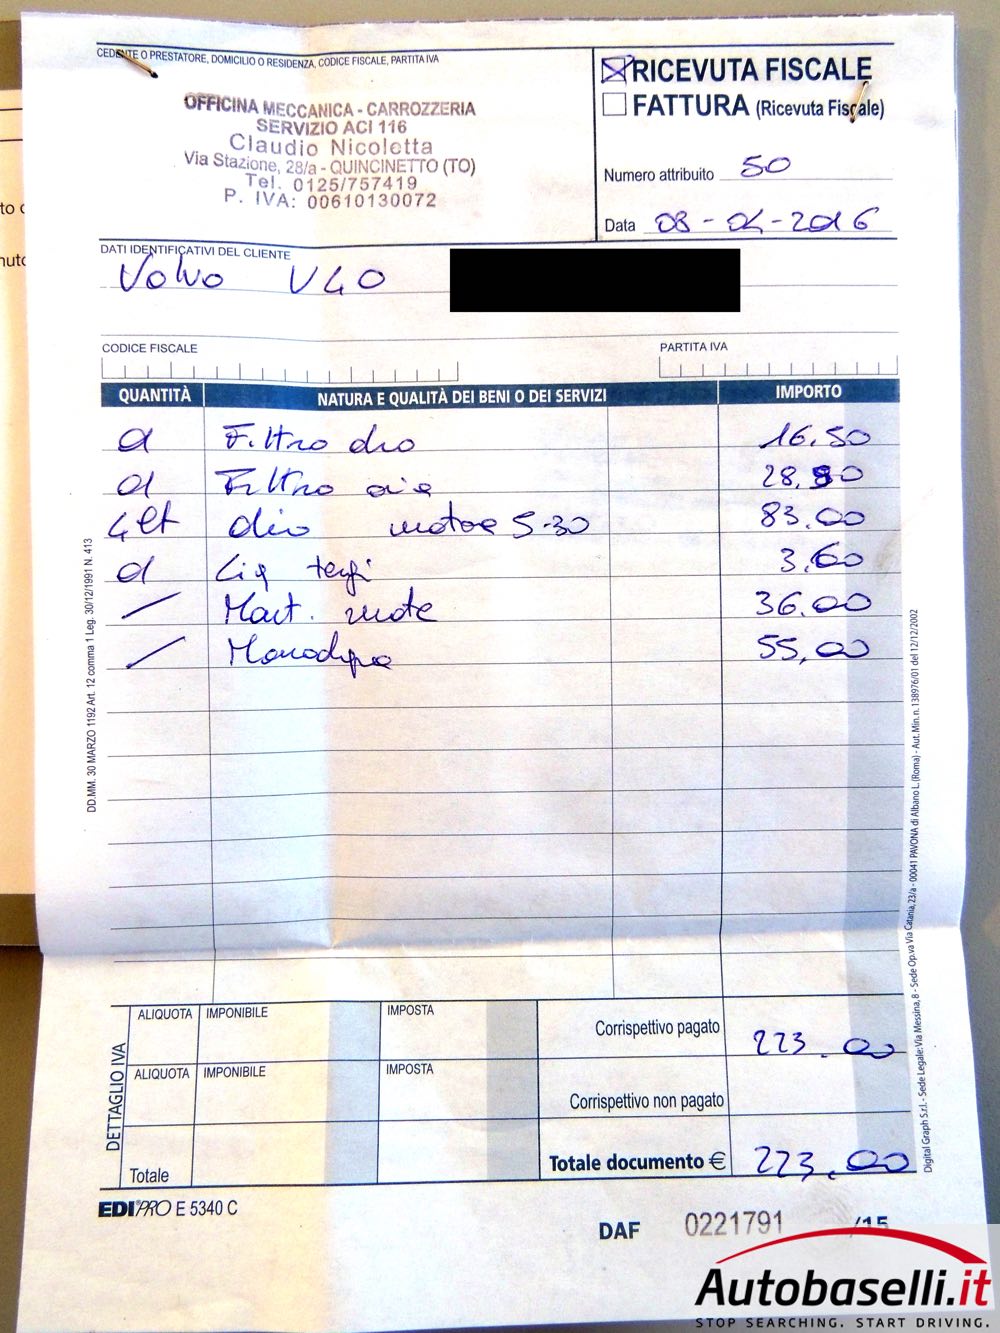 CEDENTE O PRESTATORE, DOMICILIO O RESIDENZA, CODICE FISCALE, PARTITA IVA
OFFICINA MECCANICA - CARROZZERIA
SERVIZIO ACI 116
Claudio Nicoletta
Via Stazione, 28/a - QUINCINETTO (TO)
Tel. 0125/757419
P. IVA: 00610130072
RICEVUTA FISCALE
FATTURA (Ricevuta Fiscale)
Numero attribuito 50
Data 08-04-2016
DATI IDENTIFICATIVI DEL CLIENTE
Volvo V40
CODICE FISCALE PARTITA IVA
QUANTITÀ NATURA E QUALITÀ DEI BENI O DEI SERVIZI IMPORTO
Filtro olio 16.50
Filtro aria 28,90
4 lt olio motore 5-30 83.00
Liq tergi 3,60
36.00
55,00
DD.MM. 30 MARZO 1192 Art. 12 comma 1 Leg. 30/12/1991 N. 413
Digital Graph S.r.l. - Sede Legale: Via Messina, 8 - Sede Op.va Via Catania, 23/a - 00041 PAVONA di Albano L. (Roma) - Aut. Min. n. 138976/01 del 12/12/2002
DETTAGLIO IVA
ALIQUOTA IMPONIBILE IMPOSTA
Corrispettivo pagato 223.00
ALIQUOTA IMPONIBILE IMPOSTA
Corrispettivo non pagato
Totale
Totale documento € 223,00
EDIPRO E 5340 C
DAF 0221791 /15
Autobaselli.it
STOP SEARCHING. START DRIVING.